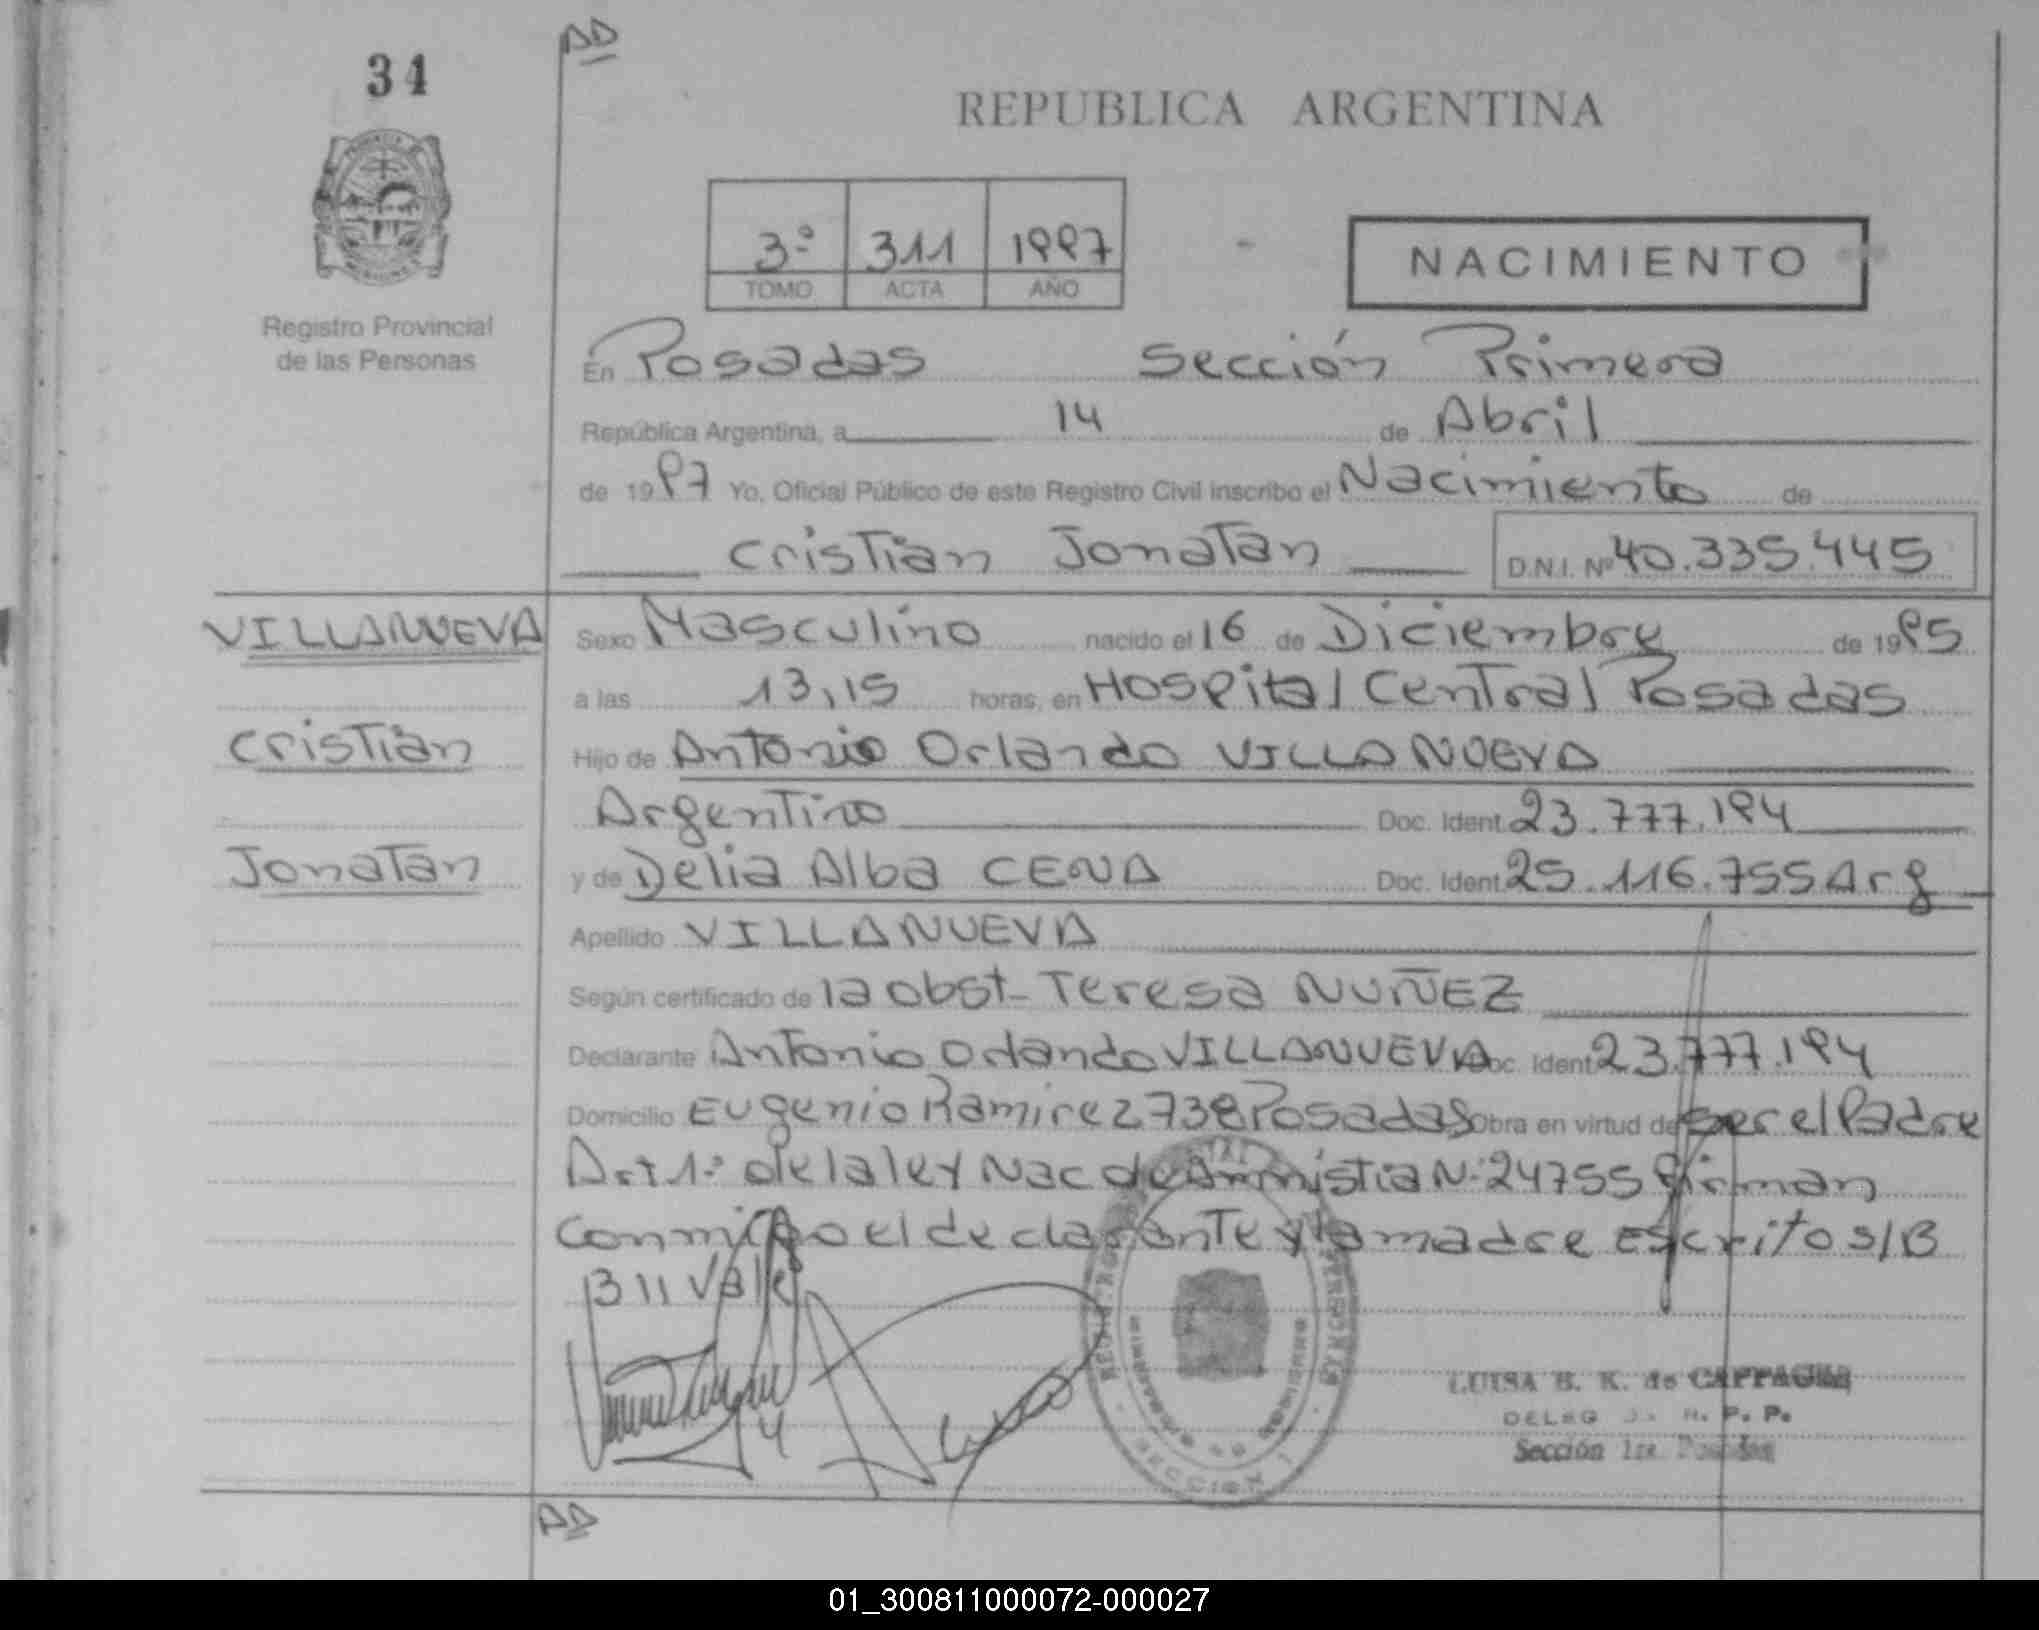 34
DD
REPUBLICA ARGENTINA
3º 311 1997
TOMO ACTA AÑO
NACIMIENTO
Registro Provincial
de las Personas
En Posadas Sección Primera
República Argentina, a 14 de Abril
de 1997 Yo, Oficial Público de este Registro Civil inscribo el Nacimiento de
Cristian Jonatan D.N.I. Nº 40.335.445
VILLANUEVA
Sexo Masculino nacido el 16 de Diciembre de 1995
a las 13,15 horas, en Hospital Central Posadas
Cristian
Hijo de Antonio Orlando VILLANUEVA
Argentino Doc. Ident. 23.777.194
Jonatan
y de Delia Alba CENA Doc. Ident. 25.116.755 Arg
Apellido VILLANUEVA
Según certificado de la obst- Teresa NUÑEZ
Declarante Antonio Orlando VILLANUEVA Doc. Ident. 23.777.194
Domicilio Eugenio Ramirez 2738 Posadas Obra en virtud de ser el Padre
Art 1º de la ley Nac de Amnistia Nº 24755 firman
conmigo el declarante y la madre Escrito s/B
B 11 Vale
SECCION 1
LUISA B. K. de
DELEG R. P. P.
Sección 1ra. Posadas
DD
01_300811000072-000027